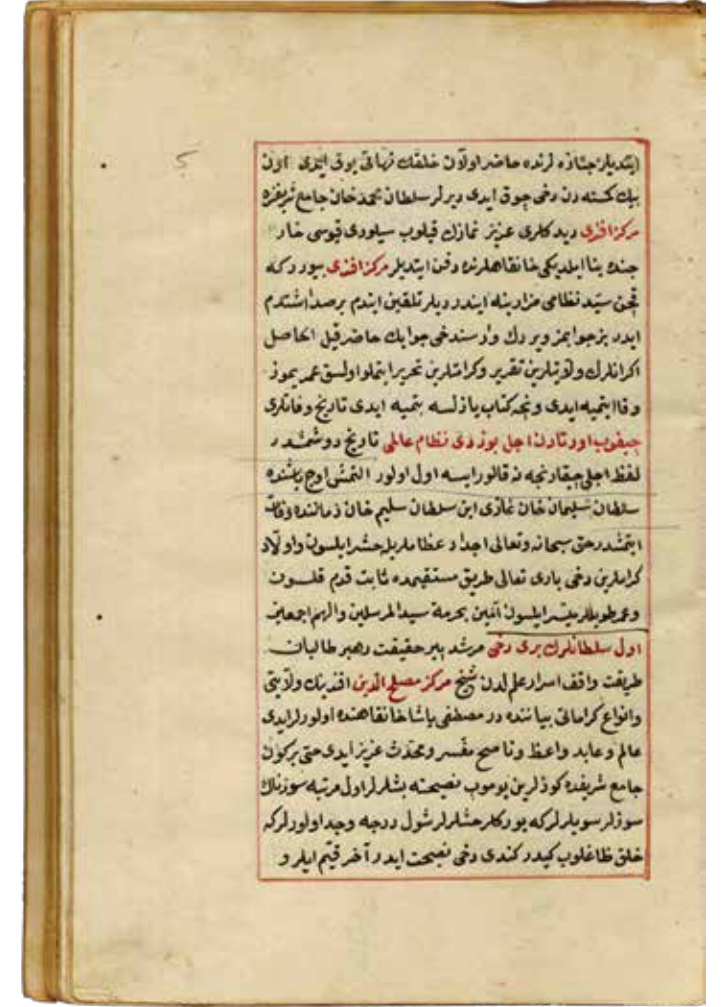 ۵
ايتديلر جنازه لرنده حاضر اولان خلقك نهاتى يوق ايدى اون
بيك كسنه دن دخى چوق ايدى ديرلر سلطان محمد خان جامع شريفنده
مركز افندى ديدكلرى عزيز نمازن قيلوب سيلورى قپوسى خار
جنده بنا ايلديكى خانقاهلرنده دفن ايتديلر مركز افندى بيوردكه
قچن سيد نظامى مزارينه اينديرديلر تلقين ايتدم بر صدا اشتدم
ايدر بز جوابمز ويردك وار سن دخى جوابك حاضر قيل الحاصل
اكر انلرك ولايتلرين تقرير وكراماتلرين تحرير ايتملو اولسق عمريموز
وفا ايتميه ايدى ونچه كتاب يازلسه يتميه ايدى تاريخ وفاتلرى
چيقوب اورتادن اجل بوزدى نظام عالمى تاريخ دوشمشدر
لفظ اجلى چيقارنجه نه قالور ايسه اول اولور التمش اوچ ياشنده
سلطان سليمان خان غازى ابن سلطان سليم خان زماننده وفات
ايتمشدر حق سبحانه وتعالى اجداد عظاملريله حشر ايلسون واولاد
كراملرين دخى بارى تعالى طريق مستقيمده ثابت قدم قلسون
وعمر طويللر ميسر ايلسون آمين بحرمة سيد المرسلين وآلهم اجمعين
اول سلطانلرك برى دخى مرشد پير حقيقت رهبر طالبان
طريقت واقف اسرار علم لدن شيخ مركز مصلح الدين افندينك ولايتى
وانواع كراماتى بياننده در مصطفى پاشا خانقاهنده اولورلر ايدى
عالم وعابد واعظ وناصح مفسر ومحدث عزيز ايدى حتى بر كون
جامع شريفده كوزلرين يوموب نصيحته بشلرلر اول مرتبه سوزنك
سوزلر سويلرلركه يوركلر حشلرلر شول درجه وجد اولورلركه
خلق طاغلوب كيدر كندى دخى نصيحت ايدر آخر قيم ايلرو